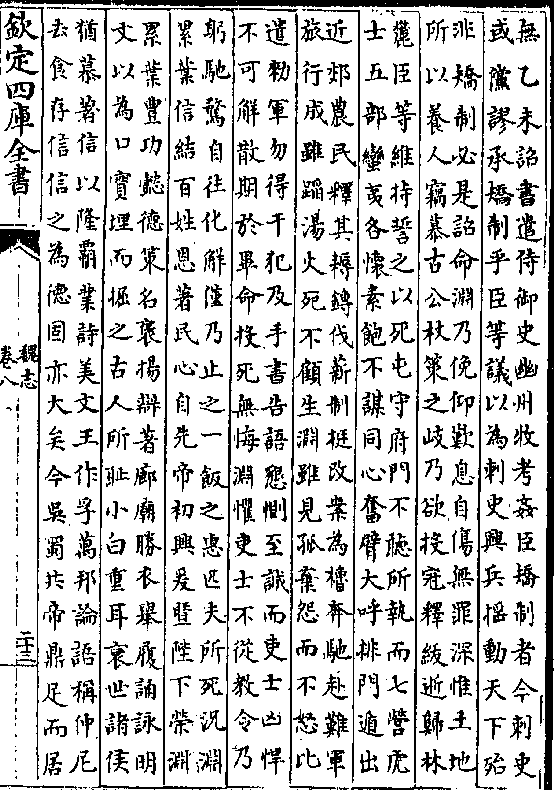 無乙未詔書遣侍御史幽州牧考姦臣矯制者今刺史
或儻謬承矯制乎臣等議以為刺史興兵揺動天下殆
非矯制必是詔命淵乃俛仰歎息自傷無罪深惟土地
所以養人竊慕古公杖策之岐乃欲投冠釋紱逝歸林
麓臣等維持誓之以死屯守府門不聽所執而七營虎
士五部蠻夷各懷素飽不謀同心奮臂大呼排門遁出
近郊農民釋其耨鎛伐薪制梃改案為櫓奔馳赴難軍
旅行成雖蹈湯火死不顧生淵雖見孤棄怨而不怒比
遣勑軍勿得干犯及手書告語懇惻至誠而吏士凶悍
不可解散期於畢命投死無悔淵懼吏士不從教令乃
躬馳騖自往化解僅乃止之一飯之惠匹夫所死況淵
累葉信結百姓恩著民心自先帝初興爰暨陛下榮淵
累葉豐功懿德策名襃揚辯著廊廟勝衣舉履誦詠明
文以為口寶埋而掘之古人所恥小白重耳衰世諸侯
猶慕著信以隆霸業詩美文王作孚萬邦論語稱仲尼
去食存信信之為德固亦大矣今吳蜀共帝鼎足而居
欽定四庫全書
魏志
卷八
二十三